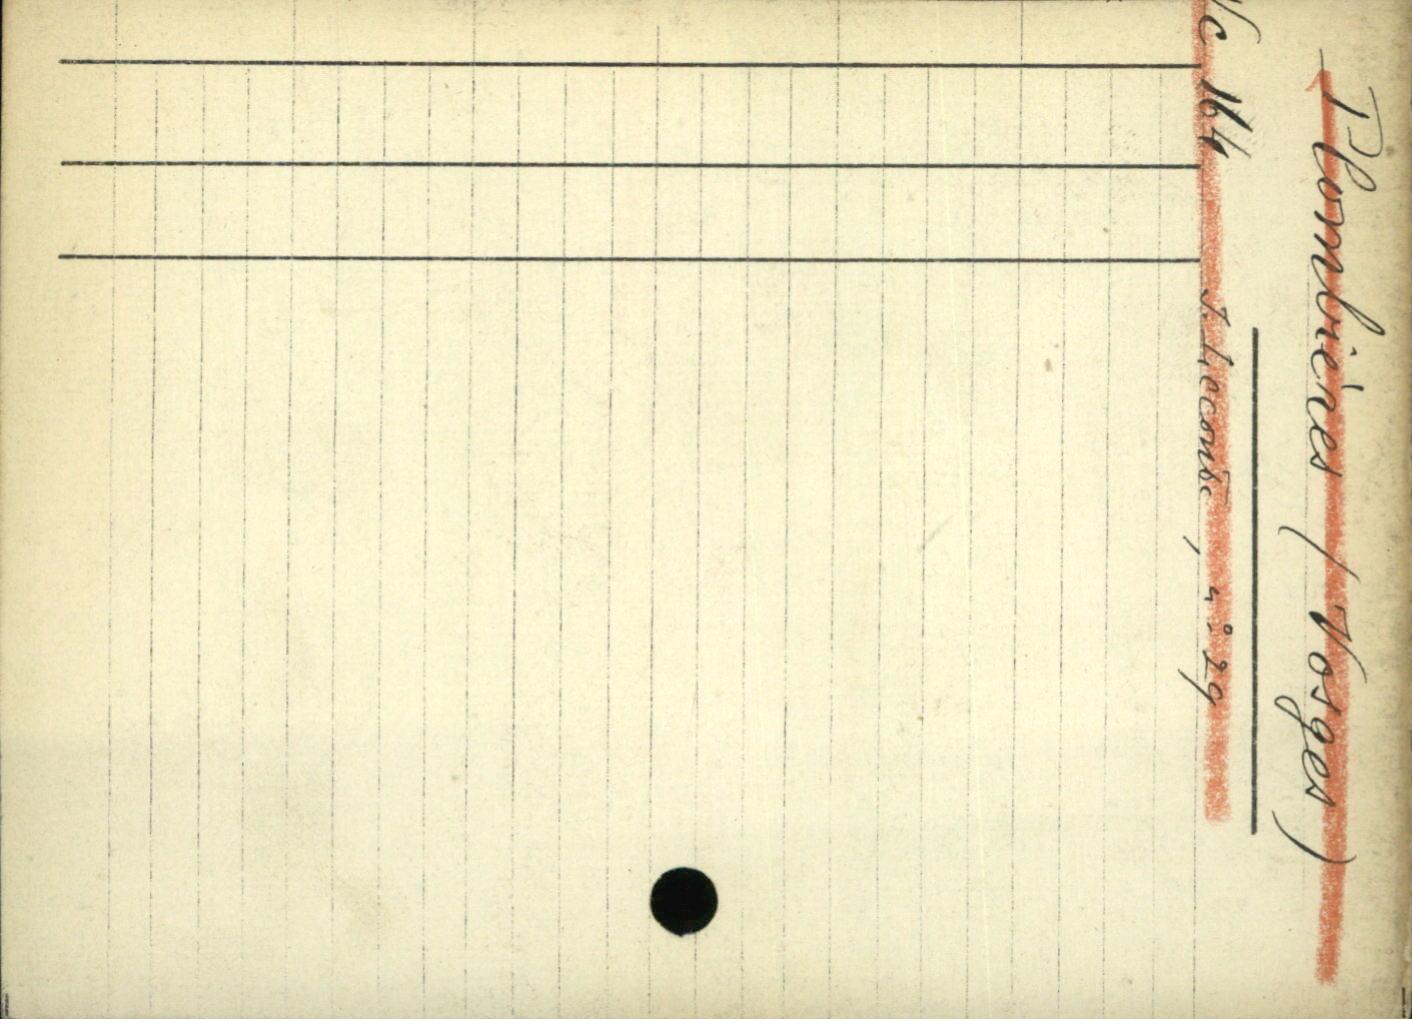 Plombières (Vosges)
Vc 164 J. Lecomte, n° 29